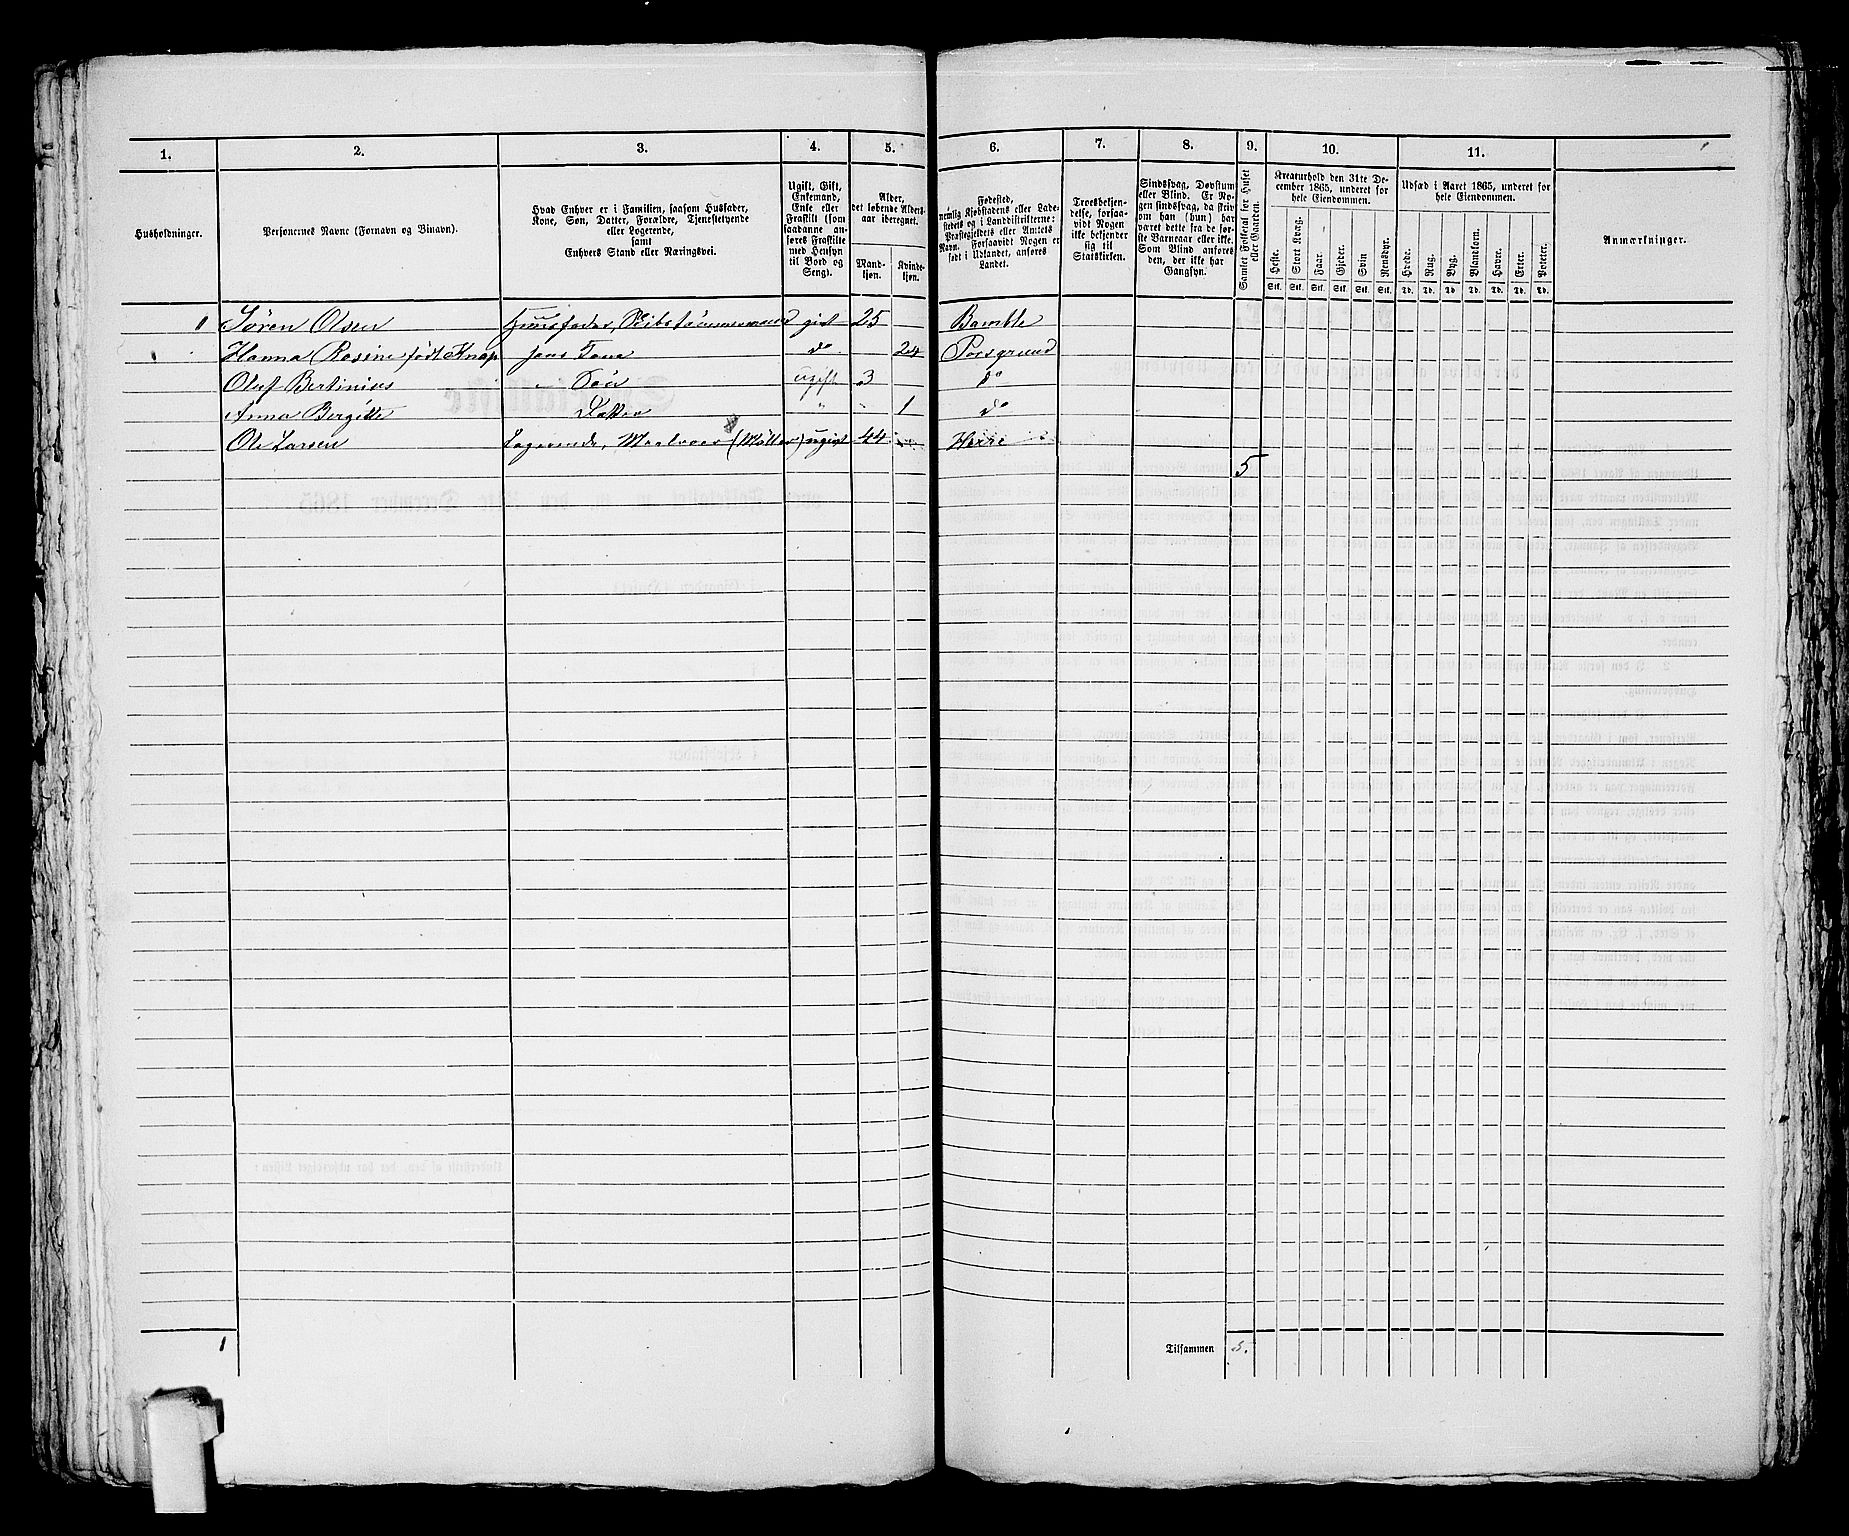 1. 2. 3. 4. 5. 6. 7. 8. 9. 10. 11.
Husholdninger.
Personernes Navne (Fornavn og Binavn).
Hvad Enhver er i Familien, saasom Husfader,
Kone, Søn, Datter, Forældre, Tjenestetyende
eller Logerende,
samt
Enhvers Stand eller Næringsvei.
Ugift, Gift,
Enkemand,
Enke eller
Fraskilt (som
saadanne an-
føres Fraskilte
med Hensyn
til Bord og
Seng).
Alder,
det løbende Alders-
aar iberegnet.
Mand-
kjøn.
Kvinde-
kjøn.
Fødested,
nemlig Kjøbstadens eller Lade-
stedets og i Landdistrikterne:
Præstegjeldets eller Amtets
Navn. Forsaavidt Nogen er
født i Udlandet, anføres
Landet.
Troesbekjen-
delse, forsaa-
vidt Nogen
ikke bekjender
sig til
Statskirken.
Sindssvag, Døvstum
eller Blind. Er No-
gen sindssvag, da skriv
om han (hun) har
været dette fra de før-
ste Barneaar eller ikke.
Som Blind anføres
den, der ikke har
Gangsyn.
Samlet Folketal for Huset
eller Gaarden.
Kreaturhold den 31te De-
cember 1865, underet for
hele Eiendommen.
Heste. Stort Kvæg. Faar. Gjeder. Svin Rensdyr.
Stk. Stk. Stk. Stk. Stk. Stk.
Udsæd i Aaret 1865, underet for
hele Eiendommen.
Hvede. Rug. Byg. Blandkorn. Havre. Erter. Poteter.
Td. Td. Td. Td. Td. Td. Td.
Anmærkninger.
1 Sören Olsen Huusfader, Skibstömmermand gift 25 Bamble
Hanna Rosine født Knap hans Kone do 24 Porsgrund
Oluf Bertinius Sön ugift 3 do
Anna Bergitte Datter " " 1 do
Ole Larsen Logerende, (Möller) ugift 44 Herre
5
1 Tilsammen 5.